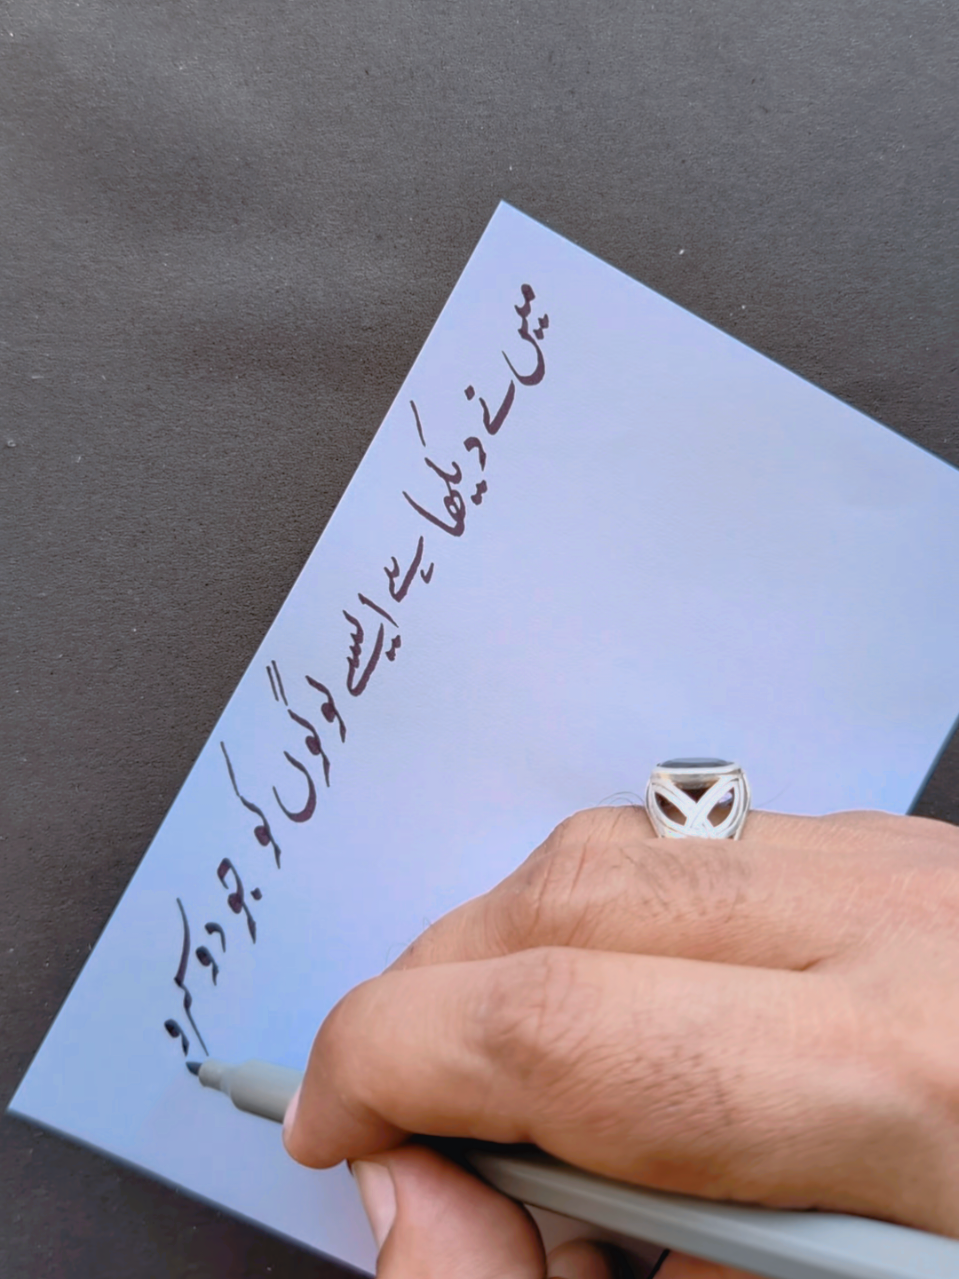 میں نے دیکھا ہے ایسے لوگوں کو جو دوسرو